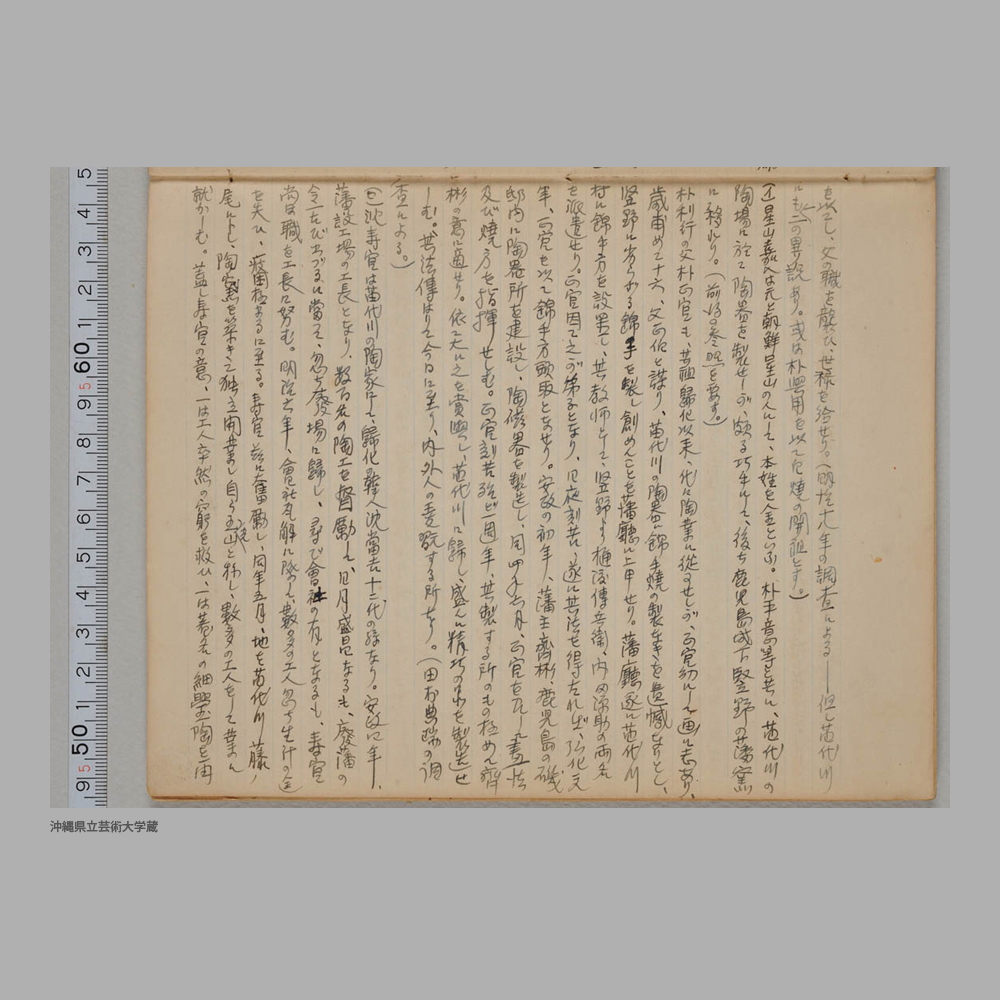 を以てし、父の職を襲ひ、世禄を給せり。(明治十八年の調査による——但し苗代川
にも二の異説あり。或は朴興用を以て白焼の開祖とす。)
星山嘉入は元と朝鮮星山の人にして、本姓を金といふ。朴平意の等と共に、苗代川の
陶場に於て陶器を製せしが、頗る巧手にして、後ち鹿児島城下竪野の藩窯
に移れり。(前項の参照を要す。)
朴利行の父朴正官も、其祖帰化以来、代に陶業に従ひせしが、正官幼にして画に志あり、
歳甫めて十六、父正伯と謀り、苗代川の陶器に錦手焼の製なきを遺憾なりとし、
竪野に於ける錦手を製し創めんことを藩廳に上申せり。藩廳遂に苗代川
村に錦手方を設置し、其教師として、竪野より樋渡傳兵衛、内田清助の両名
を派遣せり。正官因て之が弟子となり、日夜刻苦し、遂に其法を得たれば、弘化元
年、正官を以て錦手方頭取となせり。安政の初年、藩主齊彬、鹿児島の磯
邸内に陶器所を建設し、陶磁器を製造し、同四年六月、正官を召し畫法
及び焼方を指揮せしむ。正官刻苦殆ど一周年、其製する所のもの極めて齊
彬の意に適せり。依て大に之を賞與し、苗代川に歸し、盛んに精巧のものを製造せ
しむ。其法傳はりて今日に至り、内外人の愛翫する所なり。(田お典瑞の調
査による。)
沈壽官は苗代川の陶家にして、歸化の韓人沈當吉十二代の孫なり。安政四年、
藩設工場の工長となり、数百名の陶工を督勵し、日月盛昌なるも、廢藩の
令ちびちづるに當て、忽ち廢場に歸し、尋で會社の有となるも、壽官
尚ほ職を工長に努む。明治七年、會社瓦解に際し、數多の工人忽ち生計の途
を失ひ、疲困極るに至る。壽官茲に奮勵し、同年五月、地を苗代川藤ノ
尾にトし、陶窯を築きて独立開業し、自ら玉光山と称し、數多の工人をして業に
就かしむ。蓋し壽官の意、一は工人卒然の窮を救ひ、一は舊者の細密陶を再
沖縄県立芸術大学蔵